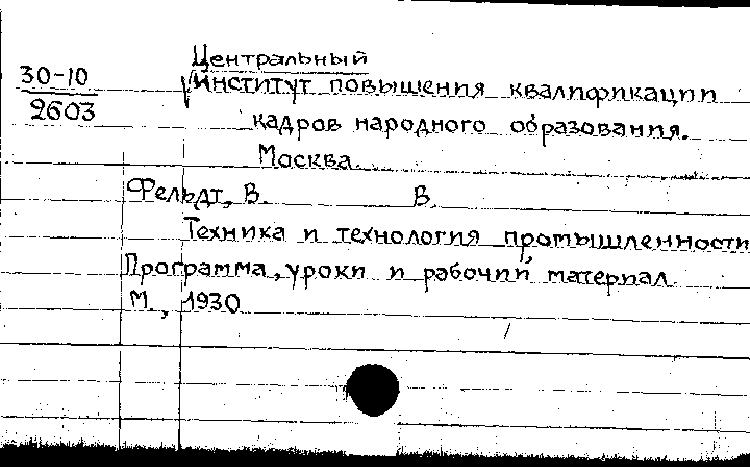 Центральный
30-10
институт повышения квалификации
2603
кадров народного образования.
Москва
Фельдт, В. В.
Техника и технология промышленности
Программа, уроки и рабочий материал
М., 1930